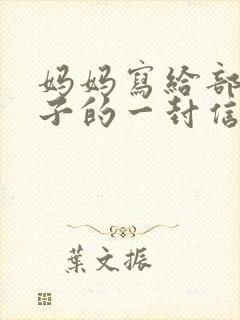 妈妈寫給部
子的一封信
葉文振